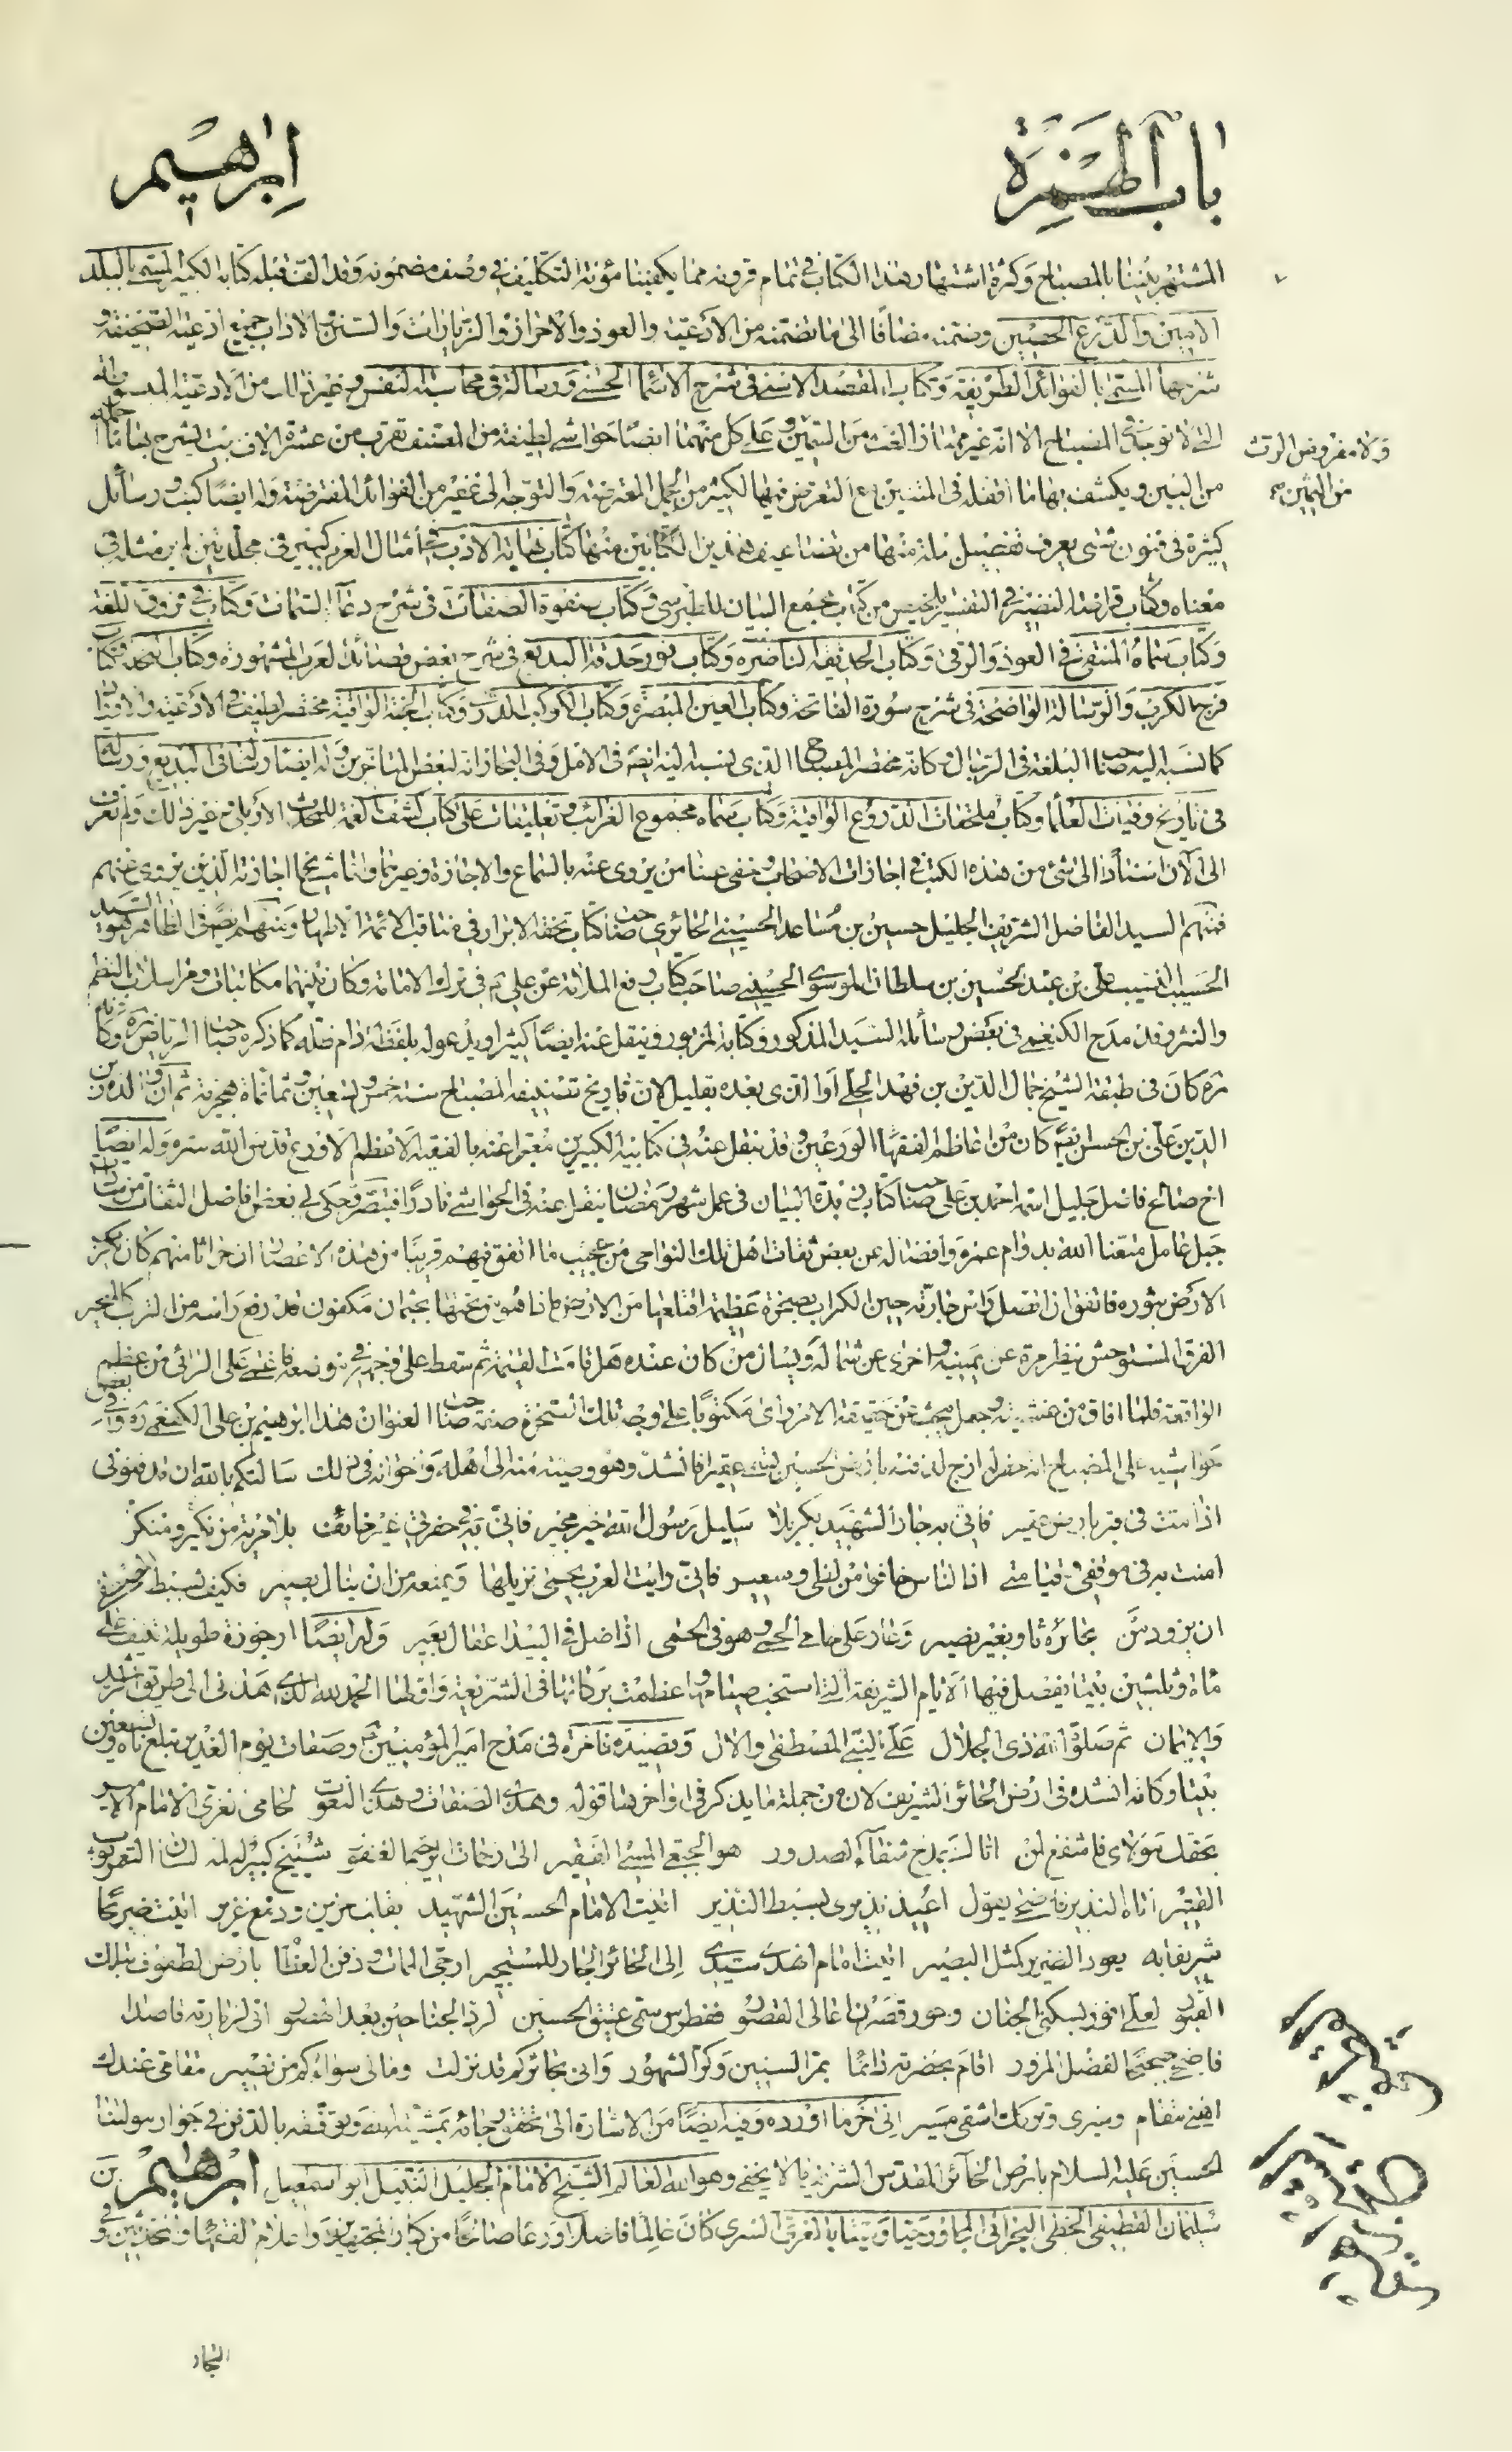 باب الهمزة
ابرهيم
المشتهر بيننا بالمصباح وكثرة اشتهار هذا الكتاب في تمام قرونه مما يكفينا مؤنة التكليف في وصف مضمونه وقد الف قبله كتابه الكبير المسمى بالبلد
الامين والدرع الحصين وضمنه مضافا الى ما تضمنه من الأدعية والعوذ والاحراز والزيارات والسنن والاداب جميع ادعية الصحيفة و
شرحها المسمى بالفوائد الطريفة وكتاب المقصد الاسنى في شرح الاسماء الحسنى ورسالة في محاسبة النفس وغير ذلك من الأدعية المبسوطة
التي لا توجد في المصباح الا انه غير مميز الغث من السمين وعلى كل منهما ايضا حواشي لطيفة من المصنف تقرب من عشرة الاف بيت يشرح بها ما اجمله
من البين ويكشف بها ما افضله في المتنين مع التعرض فيها لكثير من الجمل المعترضة والتوجه الى نمير من الفوائد المفترضة وله ايضا كتب ورسائل
كثيرة في فنون شتى يعرف تفصيل نبذة منها من تضاعيف هذين الكتابين منها كتاب نهاية الادب في أمثال العرب كبير في مجلدين لم ير مثله في
معناه وكتاب قراضة النضير في التفسير ملخص من كتاب مجمع البيان للطبرسي وكتاب صفوة الصفات في شرح دعاء السمات وكتاب في فروق اللغة
وكتاب سماه المنتقى في العوذ والرقى وكتاب الحديقة الناضرة وكتاب نور حدقة البديع في شرح بعض قصائد العرب المشهورة وكتاب النحلة وكتاب
فرج الكرب والرسالة الواضحة في شرح سورة الفاتحة وكتاب العين المبصرة وكتاب الكوكب الدري وكتاب الجنة الواقية مختصر لطيف في الأدعية والاوراد
كما نسبه اليه صاحب البلغة في الرجال وكانه مختصر المصباح الذي ينسبه اليه ايضا في الامل وفي البحار انه لبعض المتأخرين وله ايضا رسالة في البديع ورسالة
في تاريخ وفيات العلماء وكتاب ملحقات الدروع الواقية وكتاب سماه مجموع الغرائب وتعليقات على كتاب كشف الغمة للمحدث الأربلي وغير ذلك ولم نعرف
الى الآن اسنادا الى شئ من هذه الكتب في اجازات الاصحاب وخفي عنا من يروى عنه بالسماع والاجازة وغيرهما واما مشيخة اجازته الذين يروى عنهم
فمنهم السيد الفاضل الشريف الجليل حسين بن مساعد الحسيني الحائري صاحب كتاب تحفة الابرار في مناقب الائمة الاطهار ومنهم ايضا في الظاهر هو السيد
الحسيب النسيب علي بن عبد الحسين بن سلطان الموسوي الحسيني صاحب كتاب رفع الملامة عن علي ع في ترك الامامة وكان بينهما مكاتبات ومراسلات بالنظم
والنثر وقد مدح الكفعمي في بعض رسائله السيد المذكور وكتابه المزبور وينقل عنه ايضا كثيرا ويدعو له بلفظة دام ظله كما ذكره صاحب الرياض ره وكانه
ره كان في طبقة الشيخ جمال الدين بن فهد الحلي او الذي بعده بقليل لان تاريخ تصنيفه المصباح سنة خمس وتسعين وثمانمأة هجرية ثم ان والده زين
الدين علي بن الحسن ايضا كان من اعاظم الفقهاء الورعين وقد ينقل عنه في كتابيه الكبيرين معبرا عنه بالفقيه الاعظم الاورع قدس الله سره وله ايضا
اخ صالح فاضل جليل اسمه احمد بن علي صاحب كتاب زبدة البيان في عمل شهر رمضان ينقل عنه في الحواشي نادرا فتبصر وحكى لي بعض افاضل الثقات من سادات
جبل عامل متعنا الله بدوام عمره وافضاله عن بعض ثقات اهل تلك النواحي من عجيب ما اتفق فيهم قريبا من هذه الاعصار ان حراثا منهم كان يكرب
الارض بثوره فاتفق ان اتصل راس جارته حين الكراب بصخرة عظيمة اقتلعها من الارض فاذا هو من تحتها بجثمان مكفون قد رفع راسه من التراب كالمتحير
الفرق المستوحش ينظر مرة عن يمينه واخرى عن شماله ويسال من كان عنده هل قامت القيمة ثم سقط على وجهه في موضعه فاغمي على الرائي من عظم
الواقعة فلما افاق من غشيته وجعل يبحث عن حقيقة الامر راى مكتوبا على وجه تلك الصخرة صفة صاحب العنوان هذا ابرهيم بن علي الكفعمي ره وفي بعض
حواشيه على المصباح انه حفر له ازج لدفنه بارض الحسين تسمى عقيرا فانشد وهو وصية منه الى اهله واخوانه في ذلك سالتكم بالله ان تدفنوني
اذا مت في قبر بارض عقير فاني به جار الشهيد بكربلا سليل رسول الله خير مجير فاني به في حفرتي غير خائف بلا مرية من نكير ومنكر
امنت به في موقفي وقيامتي اذا الناس خافوا من لظى وسعير فاني رايت العرب يحمي نزيلها ويمنعه من ان ينال بضير فكيف بسبط المصطفى
ان يرد من بحائره ثاو بغير نصير وعار على حامي الحمى وهو في الحمى اذا ضل في البيدا عقال بعير وله ايضا ارجوزة طويلة تنيف على
مأة وثلثين بيتا يفصل فيها الايام الشريفة التي استحب صيامها وعظمت بركاتها في الشريعة واولها الحمد لله الذي هداني الى طريق الرشد
والايمان ثم صلوة الله ذي الجلال على النبي المصطفى والال وقصيدة فاخرة في مدح امير المؤمنين ع وصفات يوم الغدير تبلغ مأة وتسعين
بيتا وكانه انشده في ارض الحائر الشريف لان من جملة ما يذكر في اواخرها قوله وهذي الصفات وهذي النعوت لحامي الغري الامام الامير
بحقك مولاي فاشفع لمن اتاك بمدح شفاء الصدور هو الجبعي المسئ الفقير الى رحمات الرحيم الغفور شيخ كبير له لمة كساها التعمر ثوب
القتير اتاه النذير فاضحى يقول اعيذ نذيري بسبط النذير اتيت الامام الحسين الشهيد بقلب حزين ودمع غزير اتيت ضريحا
شريفا به يعود الضرير كمثل البصير اتيت امام الهدى سيدي الى الحائر الجار للمستجير ارجى الممات ودفن العظام بارض الطفوف بتلك
القبور لعلي افوز بسكنى الجنان وحور قصرن ها عالى القصور ففطرس سمى عتيق الحسين لرد الجناحين بعد الحضور اتى لزيارته قاصدا
فاضحى صحيحا لفضل المزور اقام بحضرته دائما بمر السنين وكر الشهور واني بحائركم قد نزلت ومالي سواكم من نصير مقامي عندك
اهنى مقام ومسيري وبعدك اشقى مسير الى اخر ما اورده وفيه ايضا من الاشارة الى تحقق رجائه بمشية الله وتوفقه بالدفن في جوار مولينا
الحسين عليه السلام بارض الحائر المقدس الشريف ما لا يخفى وهو الله العالم الشيخ الامام الجليل النبيل ابو اسمعيل ابرهيم بن
سليمان القطيفي الخطي البحراني المجاور حيا وميتا بالغري السري كان عالما فاضلا ورعا صالحا من كبار المجتهدين واعلام الفقهاء والمحدثين وفي
البحار